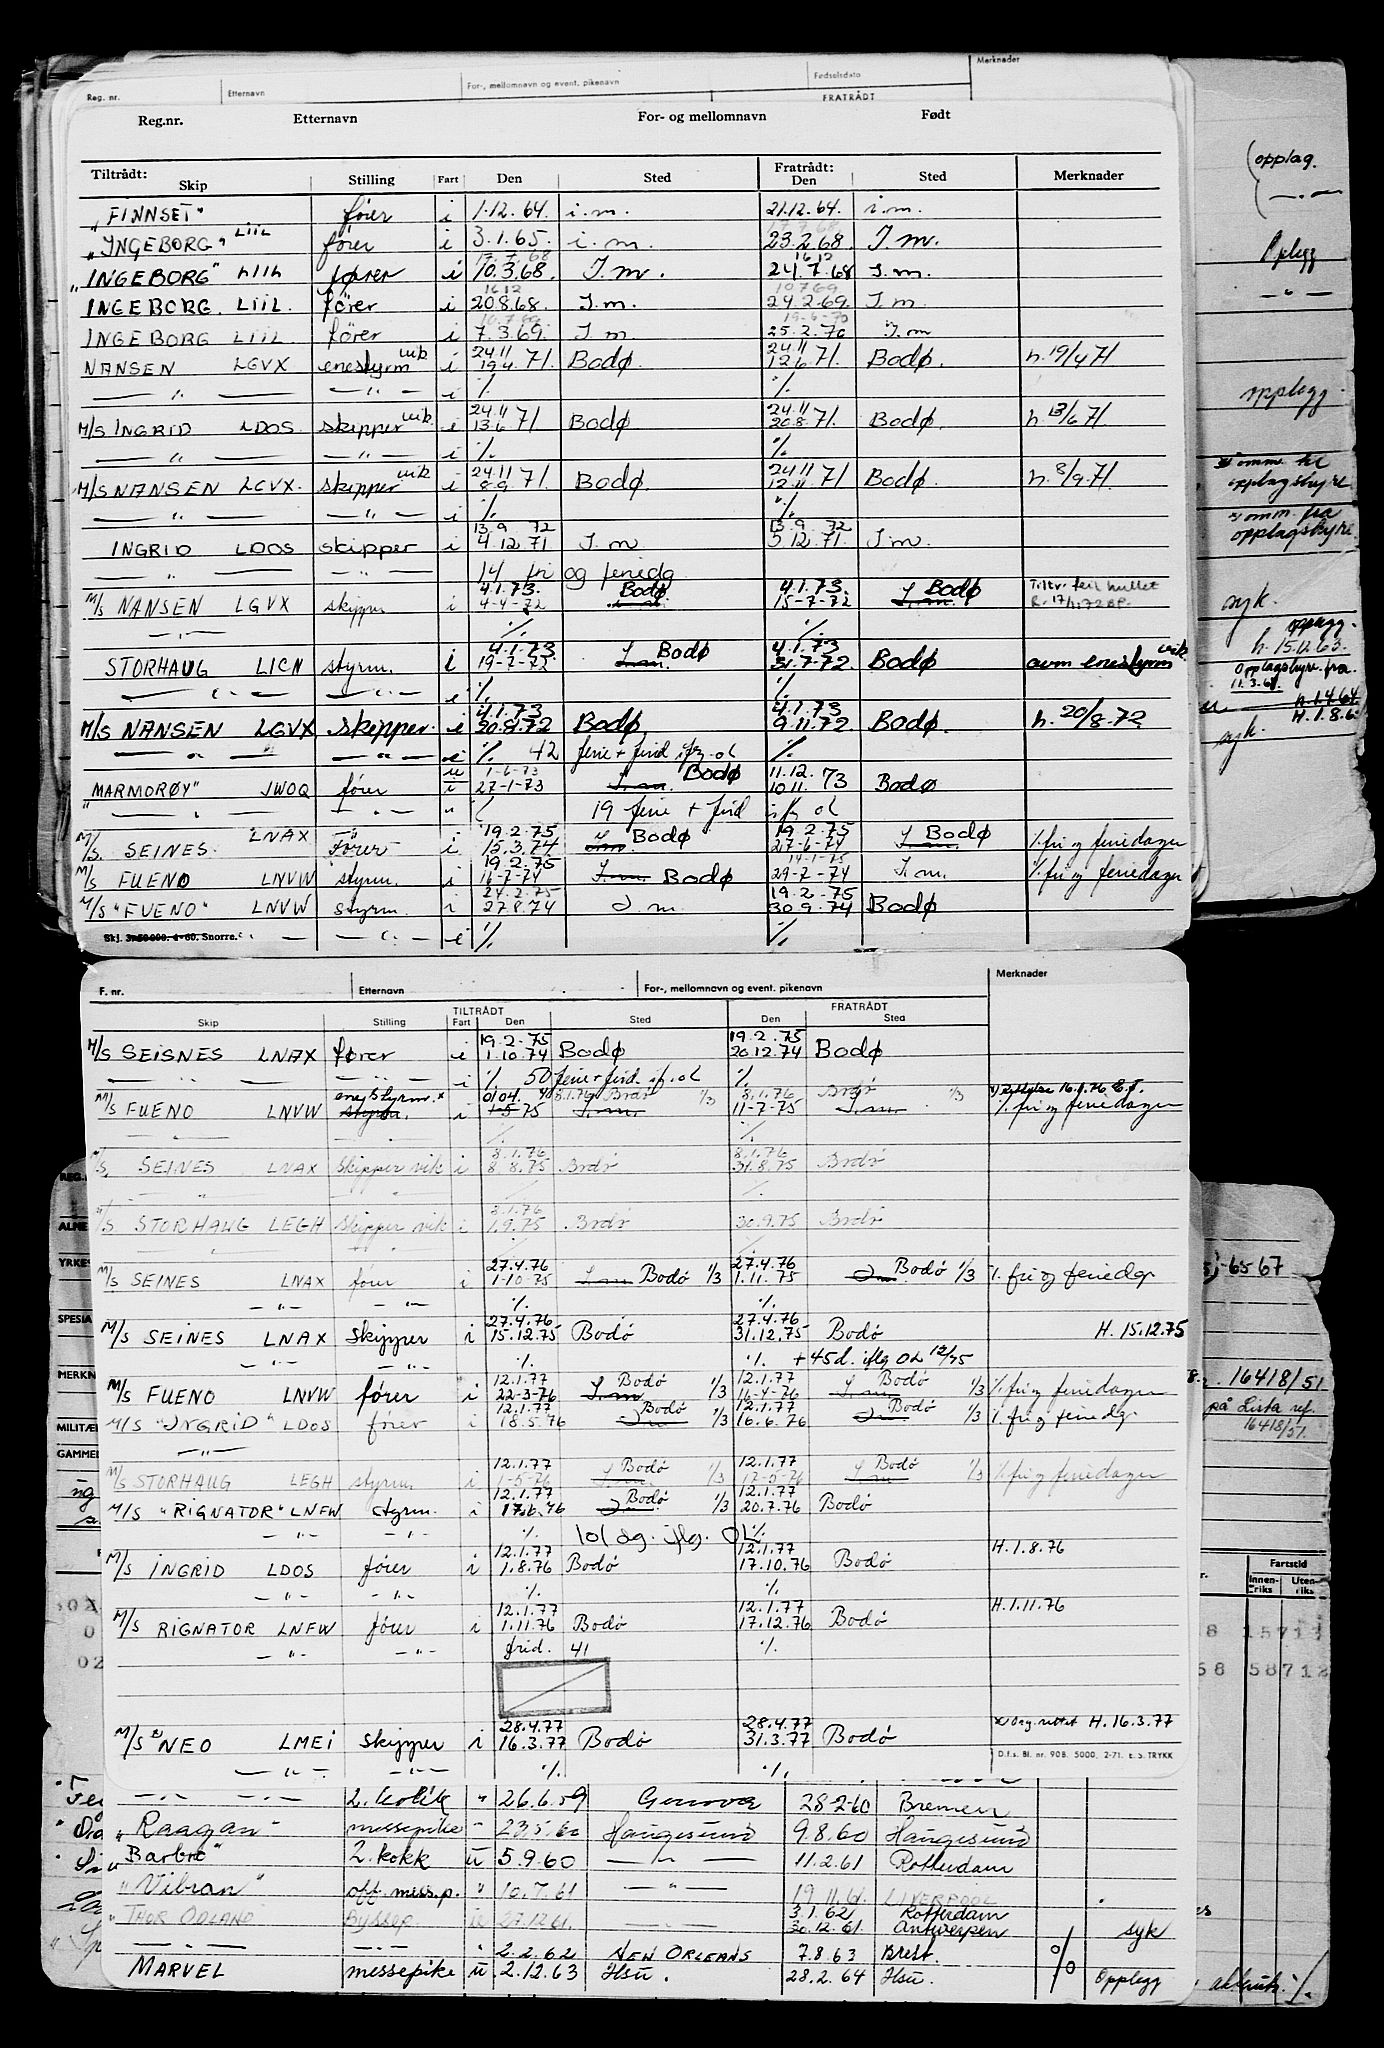 Reg. nr. Etternavn For-, mellomnavn og event. pikenavn Fødselsdato Merknader
FRATRÅDT
Reg.nr. Etternavn For- og mellomnavn Født
Tiltrådt: Skip Stilling Fart Den Sted Fratrådt: Den Sted Merknader
"FINNSET" fører i 1.12.64. i.m. 21.12.64. i.m.
"INGEBORG" LIIL fører i 3.1.65. i.m. 23.2.68. I.m.
"INGEBORG" LIIL fører i 10.3.68. I.m. 16 12 24.7.68 I.m.
INGEBORG. LIIL. fører i 16 12 20.8.68. I.m. 10 7 69 24.2.69. I.m.
INGEBORG LIIL fører i 7.3.69. I.m 19-6-70 25.2.70 I.m
NANSEN LGVX enestyrm vik i 24 11 19 4 71. Bodø. 24 11 12 6 71. Bodø. h. 19/4 71
— " — — " — i % %
M/S INGRID LDOS. skipper vik. i 24 11 13 6 71 Bodø 24 11 20.8. 71. Bodø. h. 13/6 71.
— " — — " — i % %
M/S NANSEN LGVX. skipper vik i 24 11 8 9 71. Bodø. 24 11 12 11 71 Bodø. h. 8/9.71.
— " — — " — i % %
INGRID LDOS skipper i 13.9 72 4.12.71 I.m 13.9 72 5.12.71. I.m.
— " — — " — 14 fri og feriedg
M/S NANSEN LGVX skipper i 4.1.73. 4-4-72 Bodø i.m. 4.1.73. 15-7-72 I.m. Bodø Tiltr. feil hullet
— " — % %
STORHAUG LICN styrm. i 4.1.73. 19-7-72 I.m. Bodø 4.1.73 31.7-72 Bodø avm enestyrm vik.
— " — — " — i % %
M/S NANSEN LGVX skipper. i 4.1.73 20.8.72 Bodø 4.1.73 9.11.72 Bodø. h. 20/8-72
— " — — " — i % 42 ferie + frid ifg. ol %
"MARMORØY" JWOQ fører u i 1-6-73 27-1-73 I.m. Bodø 11.12. 10 11. 73 Bodø
— " — " % 19 ferie + frid ifg ol
M/S. SEINES. LNAX Fører i 19.2.75 15.3.74 I.m Bodø 19.2.75 27-6-74 I.m. Bodø % fri og feriedager
M/S FUENO LNVW styrm. i 19.2.75 16-7-74 I.m. Bodø 14-1-75 29-7-74 I.m. % fri og feriedager
M/S "FUENO" LNVW styrm. i 24.2.75 27.8.74 I.m. 19.2.75 30.9.74 Bodø
Skj. 3. 50 000. 4-60. Snorre. — " — — " — i % %
F. nr. Etternavn For-, mellomnavn og event. pikenavn Merknader
TILTRÅDT FRATRÅDT
Skip Stilling Fart Den Sted Den Sted
M/S SEISNES LNAX fører i 19.2.75 1.10.74 Bodø 19.2.75 20.12.74 Bodø
— " — — " — i % 50 ferie + frid. if. ol %
M/S FUENO LNVW enestyrm. x styrm. i 0104. 1-5-75 8.1.76 Bodø I.m. 1/3 8.1.76 11-7-75 Bodø I.m. 1/3 x) Rettelse 16.1.76 E.J. % fri og feriedager
— " — % %
M/S. SEINES LNAX Skipper vik i 8.1.76 8.8.75 Bodø 8.1.76 31.8.75 Bodø
— " — — " — % %
M/S STORHAUG LEGH Skipper vik i 8.1.76 1.9.75 Bodø 30.9.75 Bodø
— " — — " — % %
M/S SEINES LNAX fører i 27.4.76 1-10-75 I.m Bodø 1/3 27.4.76 1.11.75 I.m. Bodø 1/3 % fri og feriedgr
— " — — " — % %
M/S SEINES LNAX Skipper i 27.4.76 15.12.75 Bodø 27.4.76 31.12.75 Bodø H. 15.12.75
— " — — " — % % + 45 d. iflg OL 12/75
M/S FUENO LNVW fører i 12.1.77 22-3-76 Bodø I.m 1/3 12.1.77 16-4-76 Bodø I.m. 1/3 % fri og feriedager
M/S "INGRID" LDOS fører i 12.1.77 18.5.76 Bodø I.m 1/3 12.1.77 16.6.76 Bodø I.m 1/3 % fri og feriedgr
— " —
M/S STORHAUG LEGH styrm. i 12.1.77 1-5-76 Bodø I.m. 1/3 12.1.77 17-5-76 Bodø I.m. 1/3 % fri og feriedager
M/S "RIGNATOR" LNFW styrm. i 12.1.77 17.6.76 Bodø I.m. 1/3 12.1.77 20.7.76 Bodø
— " — — " — % 101 dg. iflg. OL %
M/S INGRID LDOS fører i 12.1.77 1.8.76 Bodø 12.1.77 17.10.76 Bodø H. 1.8.76
— " — — " — % %
M/S RIGNATOR LNFW fører i 12.1.77 1.11.76 Bodø 12.1.77 17.12.76 Bodø H. 1.11.76
— " — — " — frid. 41 %
M/S NEO LMEI skipper i 28.4.77 16.3.77 Bodø 28.4.77 31.3.77 Bodø x) Dag. rettet H. 16.3.77
D.f.s. Bl. nr. 90B. 5000. 2-71. E.S. TRYKK
— " — — " — % %
— " — 2. kokk " 26.6.59 Genova 28.2.60 Bremen
"Raagan" messepike " 23.5.60 Haugesund 9.8.60 Haugesund
Barbro" 2. kokk u 5.9.60 — " — 11.2.61 Rotterdam
"Vibran" off. messp. " 10.7.61 — " — 19.11.61. LIVERPOOL
"THOR ODLAND" Byssep. u 27.12.61. — " — 3.1.62 Rotterdam 30.12.61 Antwerpen syk
— " — — " — " 2.2.62 NEW ORLEANS 7.8.63 Brest. %
MARVEL messepike u 2.12.63 Hsu. 28.2.64 Hsu. Opplegg
(opplag.
(— " —
Oplegg
— " —
opplegg.
x) omm. til
opplagsbyre
x) omm. fra
opplagsbyre
syk.
opplegg.
h. 15.11.63.
Opplagsbyre. fra
11.3.61.
h. 1.4.64
H. 1.8.6
syk.
-65 67
16418/51
på Lista ref.
16418/51.
Fartstid
Innen-riks Uten-riks
8 15711
68 58712
REG.
ALNE
YRKES
SPESIA
MERKN
MILITÆR
GAMMEL
02
0
02